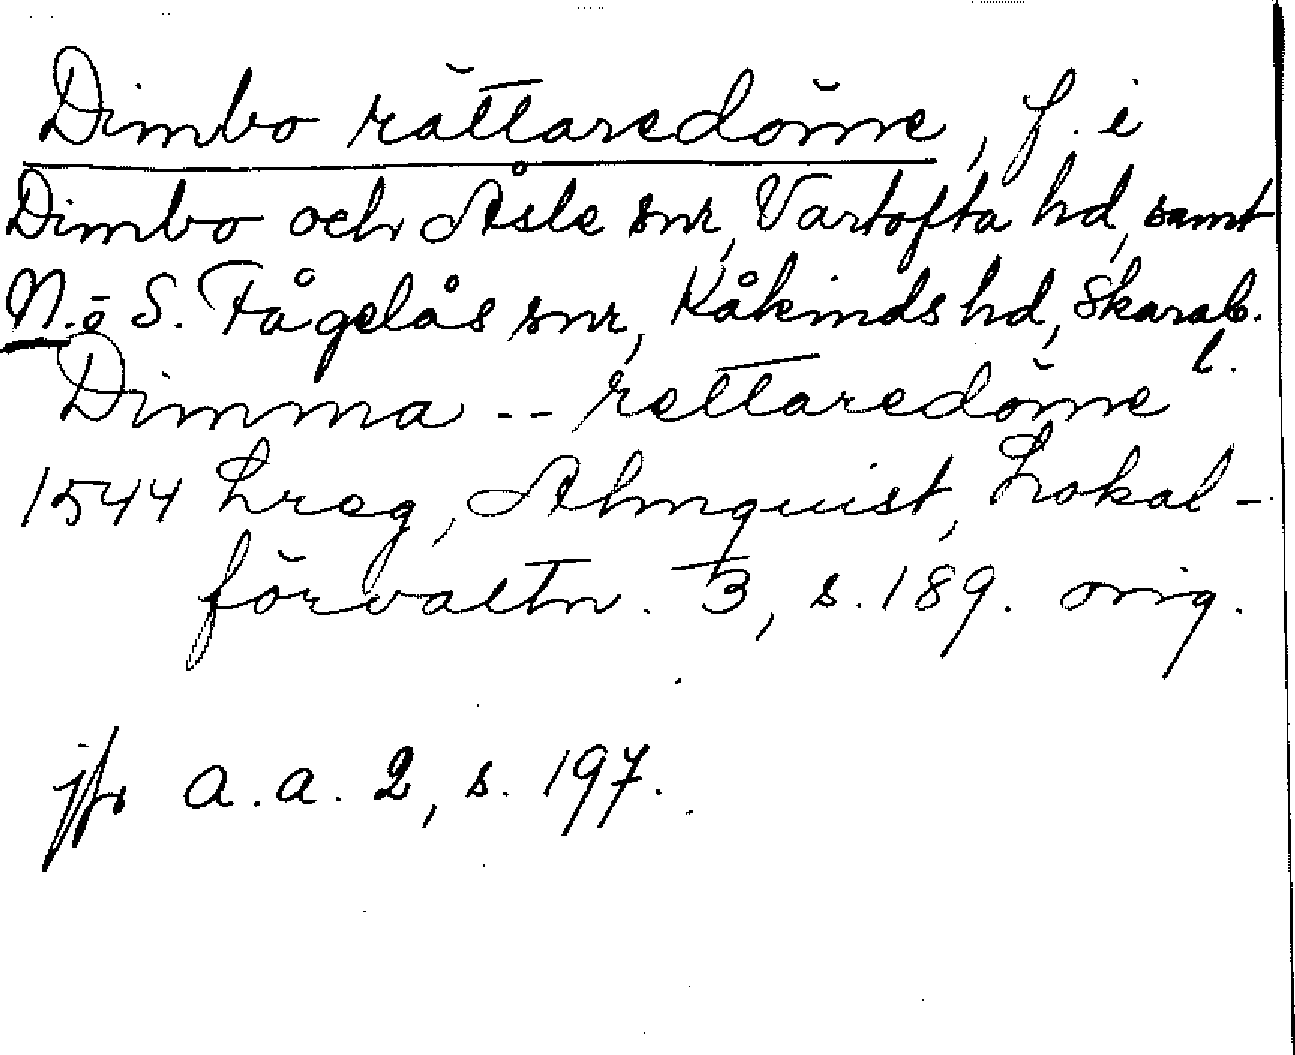 Dimbo rättaredöme, f. i
Dimbo och Åsle snr, Vartofta hd, samt
N. o S. Fågelås snr, Kåkinds hd, Skarab.
l.
Dimma -- rettaredöme
1544 Lreg, Almquist, Lokal-
förvaltn. 3, s. 189. orig.
jfr a.a. 2, s. 197.